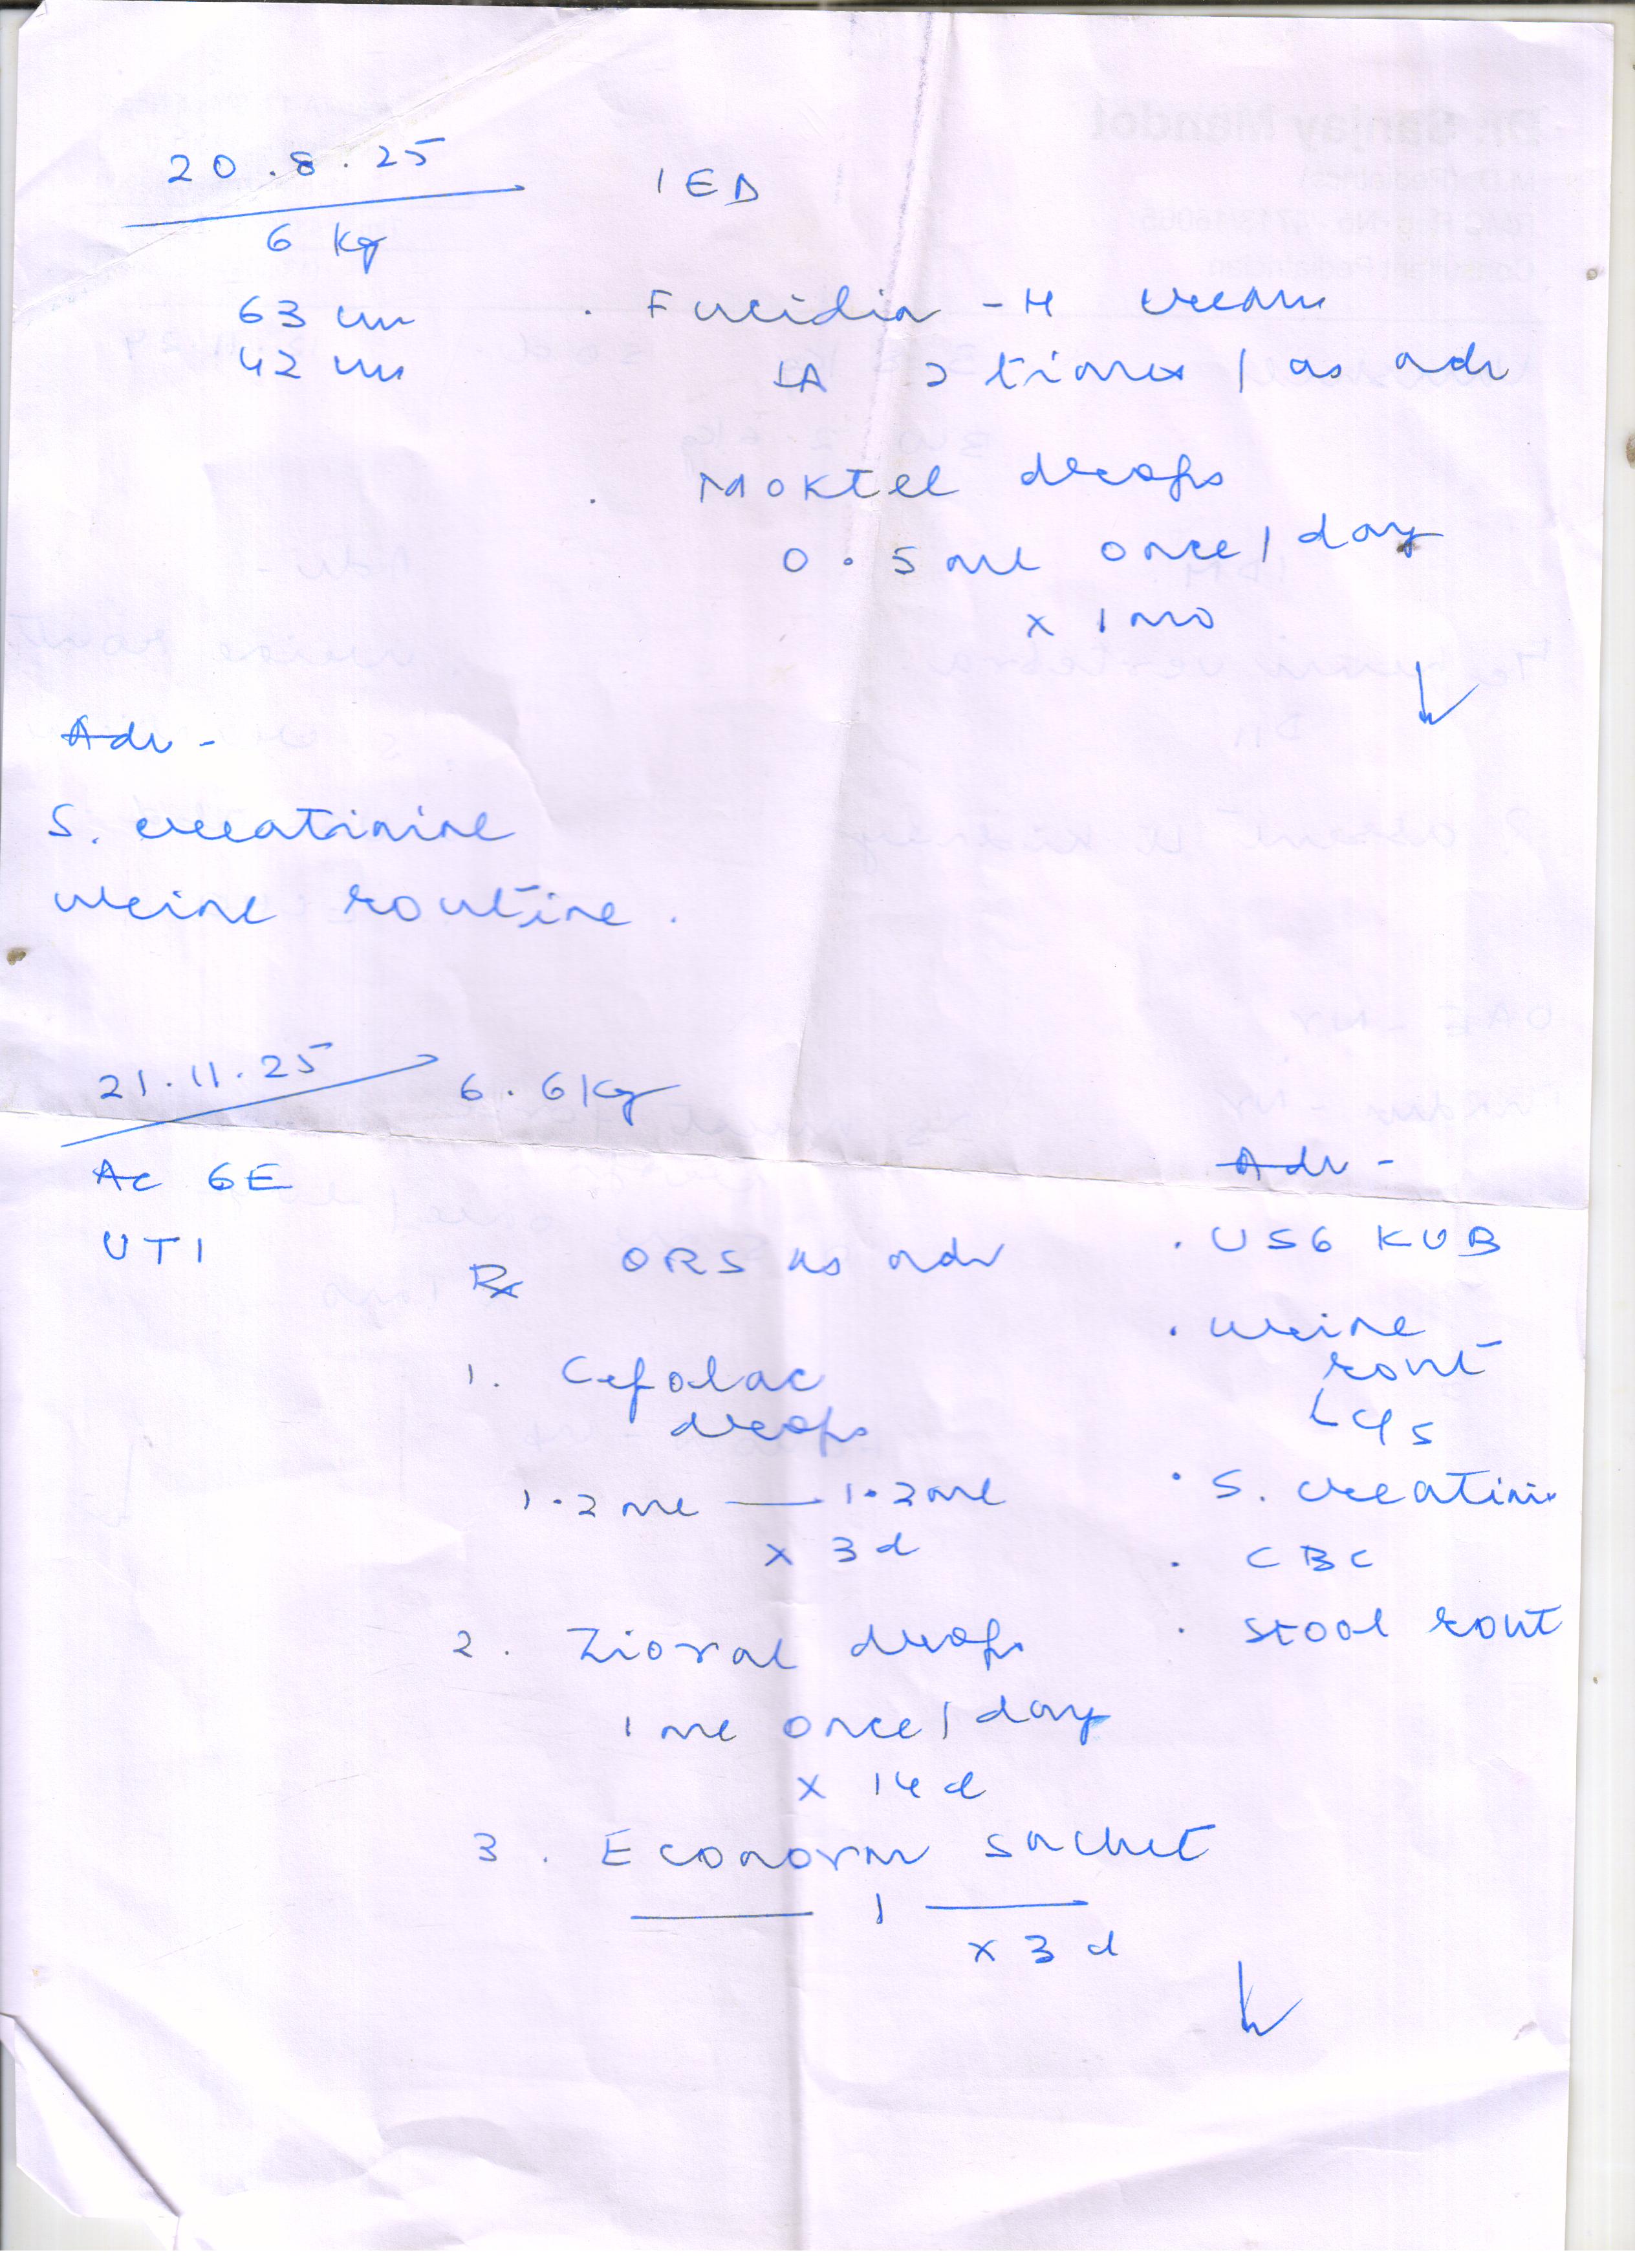 20.8.25
6 kg
63 cm
42 cm
IED
. Fucidin - H cream
LA 2 times / as adv
. Moktel drops
0.5 ml once / day
x 1 mo
Adv -
S. creatinine
urine routine.
21.11.25
6.6 kg
Ac GE
UTI
Rx ORS as adv
1. Cefolac
drops
1.2 ml — 1.2 ml
x 3 d
2. Zioral drops
1 ml once / day
x 14 d
3. Econorm sachet
— 1 —
x 3 d
Adv -
. USG KUB
. urine
rout
C/S
. S. creatinin
. CBC
. stool rout